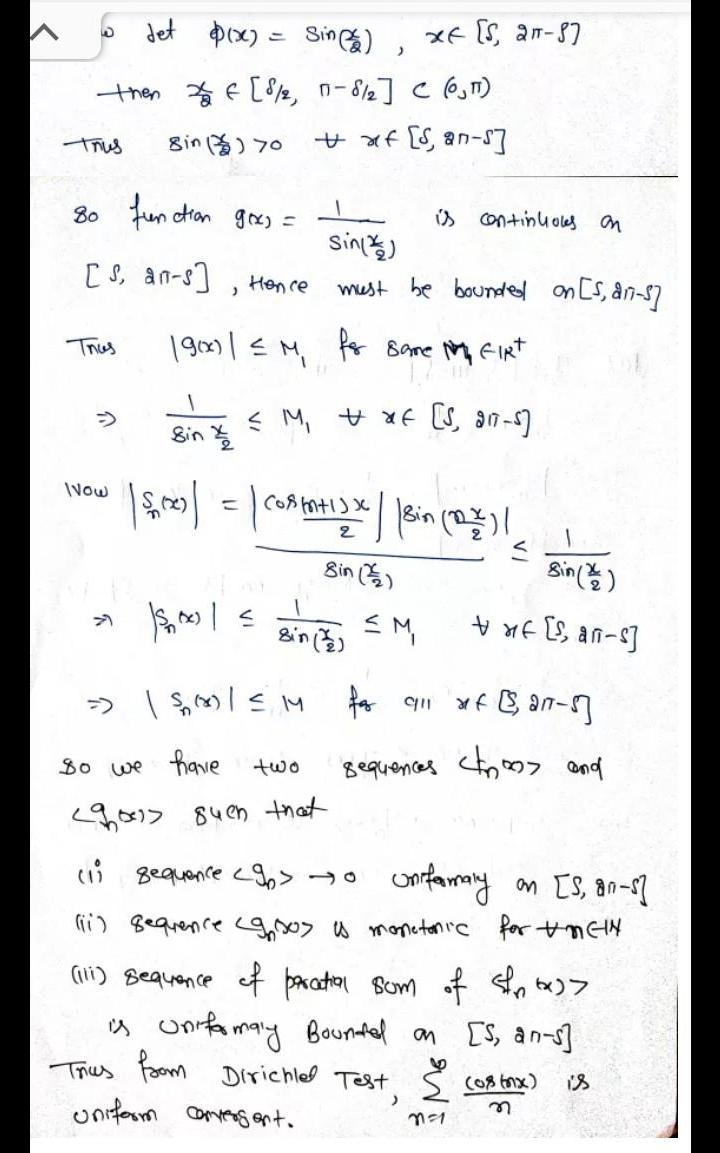 Let ϕ(x) = Sin(x/2) , x ∈ [δ, 2π-δ]
then x/2 ∈ [δ/2, π-δ/2] ⊂ (0,π)
Thus sin(x/2) >0 ∀ x∈ [δ, 2π-δ]
so function g(x) = 1/Sin(x/2) is continuous on
[δ, 2π-δ] , Hence must be bounded on [δ, 2π-δ]
Thus |g(x)| ≤ M₁ for some M₁ ∈ IR⁺
⇒ 1/Sin x/2 ≤ M₁ ∀ x∈ [δ, 2π-δ]
Now |Sₙ(x)| = |cos (n+1)x/2| |Sin (n x/2)| / Sin(x/2) ≤ 1/Sin(x/2)
⇒ |Sₙ(x)| ≤ 1/Sin(x/2) ≤ M₁ ∀ x∈ [δ, 2π-δ]
⇒ |Sₙ(x)| ≤ M for all x∈ [δ, 2π-δ]
So we have two sequences <fₙ(x)> and
<gₙ(x)> such that
(i) sequence <gₙ> → 0 uniformaly on [δ, 2π-δ]
(ii) sequence <gₙ(x)> is monotonic for ∀ n∈IN
(iii) sequence of paratial sum of <fₙ(x)>
is uniformaly Bounded on [δ, 2π-δ]
Thus from Dirichlet Test, ∞ Σ n=1 cos(nx)/n is
uniform convergent.